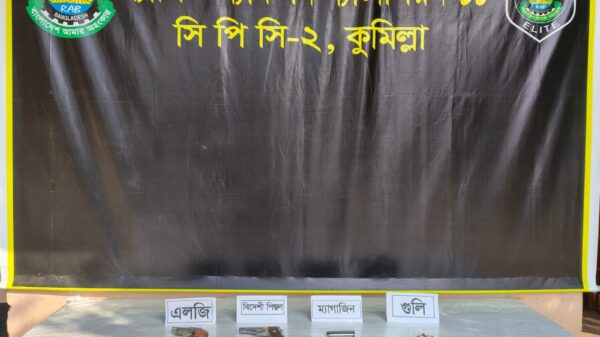 RAB
BANGLADESH
বাংলাদেশ আমার অহংকার
RAB
ELITE
সি পি সি-২, কুমিল্লা
এলজি
বিদেশী পিস্তল
ম্যাগাজিন
গুলি